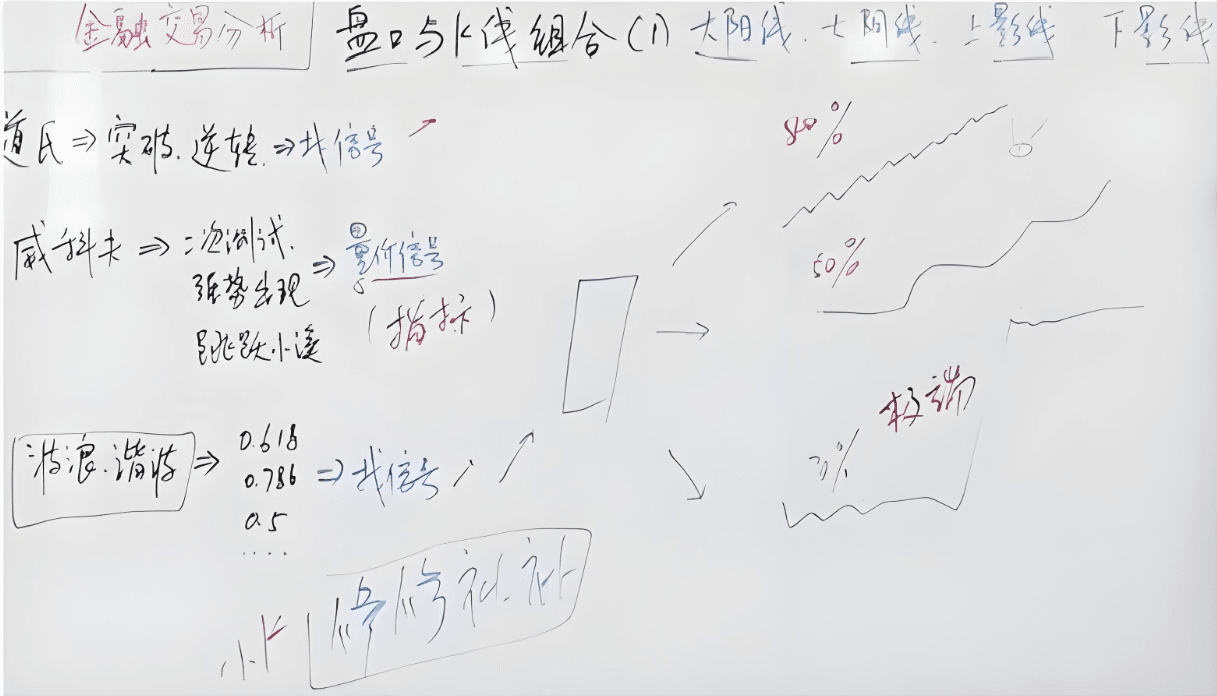 金融交易分析
盘口与K线组合(1) 大阳线、大阴线、上影线 下影线
道氏⇒突破、逆转、⇒找信号
威科夫⇒二次测试、
强势出现
跳跃小溪
⇒量价信号
(指标)
波浪、谐波⇒
0.618
0.786
0.5
....
⇒找信号
小K 修修补补
80%
50%
极端